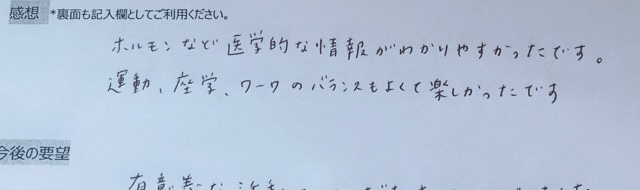 感想 *裏面も記入欄としてご利用ください。
ホルモンなど医学的な情報がわかりやすかったです。
運動、座学、ワークのバランスもよくて楽しかったです
今後の要望